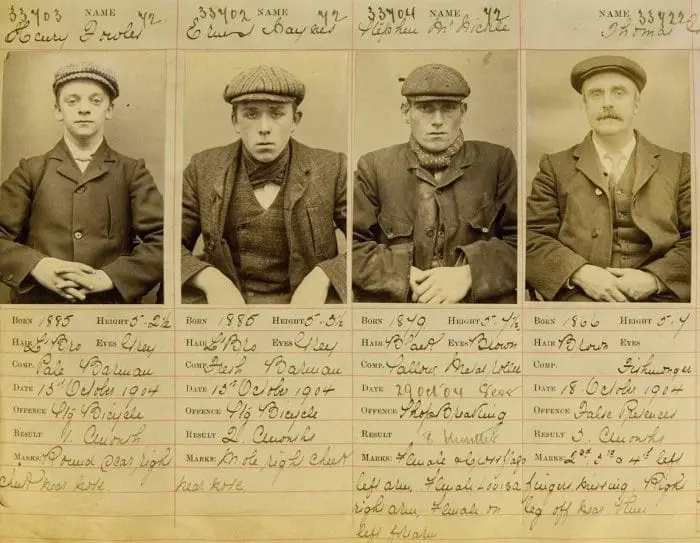 33703 NAME 72
Henry Fowler
33702 NAME 72
Ernest Haynes
33704 NAME 72
Stephen McNickle
NAME 33722
Thomas
BORN 1885 HEIGHT 5-2½
HAIR Lt Bro EYES Grey
COMP. Pale Barman
DATE 15th October 1904
OFFENCE Stg Bicycle
RESULT 1. C month
MARKS: Round scar right
cheek near nose.
BORN 1885 HEIGHT 5-3½
HAIR Lt Bro EYES Grey
COMP. Fresh Barman
DATE 15th October 1904
OFFENCE Stg Bicycle
RESULT 2. C months
MARKS: Mole right cheek
near nose.
BORN HEIGHT 5-4½
HAIR Black EYES Brown
COMP. Sallow, Metal roller
DATE 29 Oct 04
OFFENCE Shop Breaking
RESULT Months
MARKS: Female & Cross flags
left arm. Female
right arm. Female on
left f/arm
BORN 1866 HEIGHT 5-7
HAIR Brown EYES
COMP. Fishmonger
DATE 18 October 1904
OFFENCE False Pretences
RESULT 3. C months
MARKS: 2nd, 3rd & 4th left
fingers missing. Right
leg off near knee